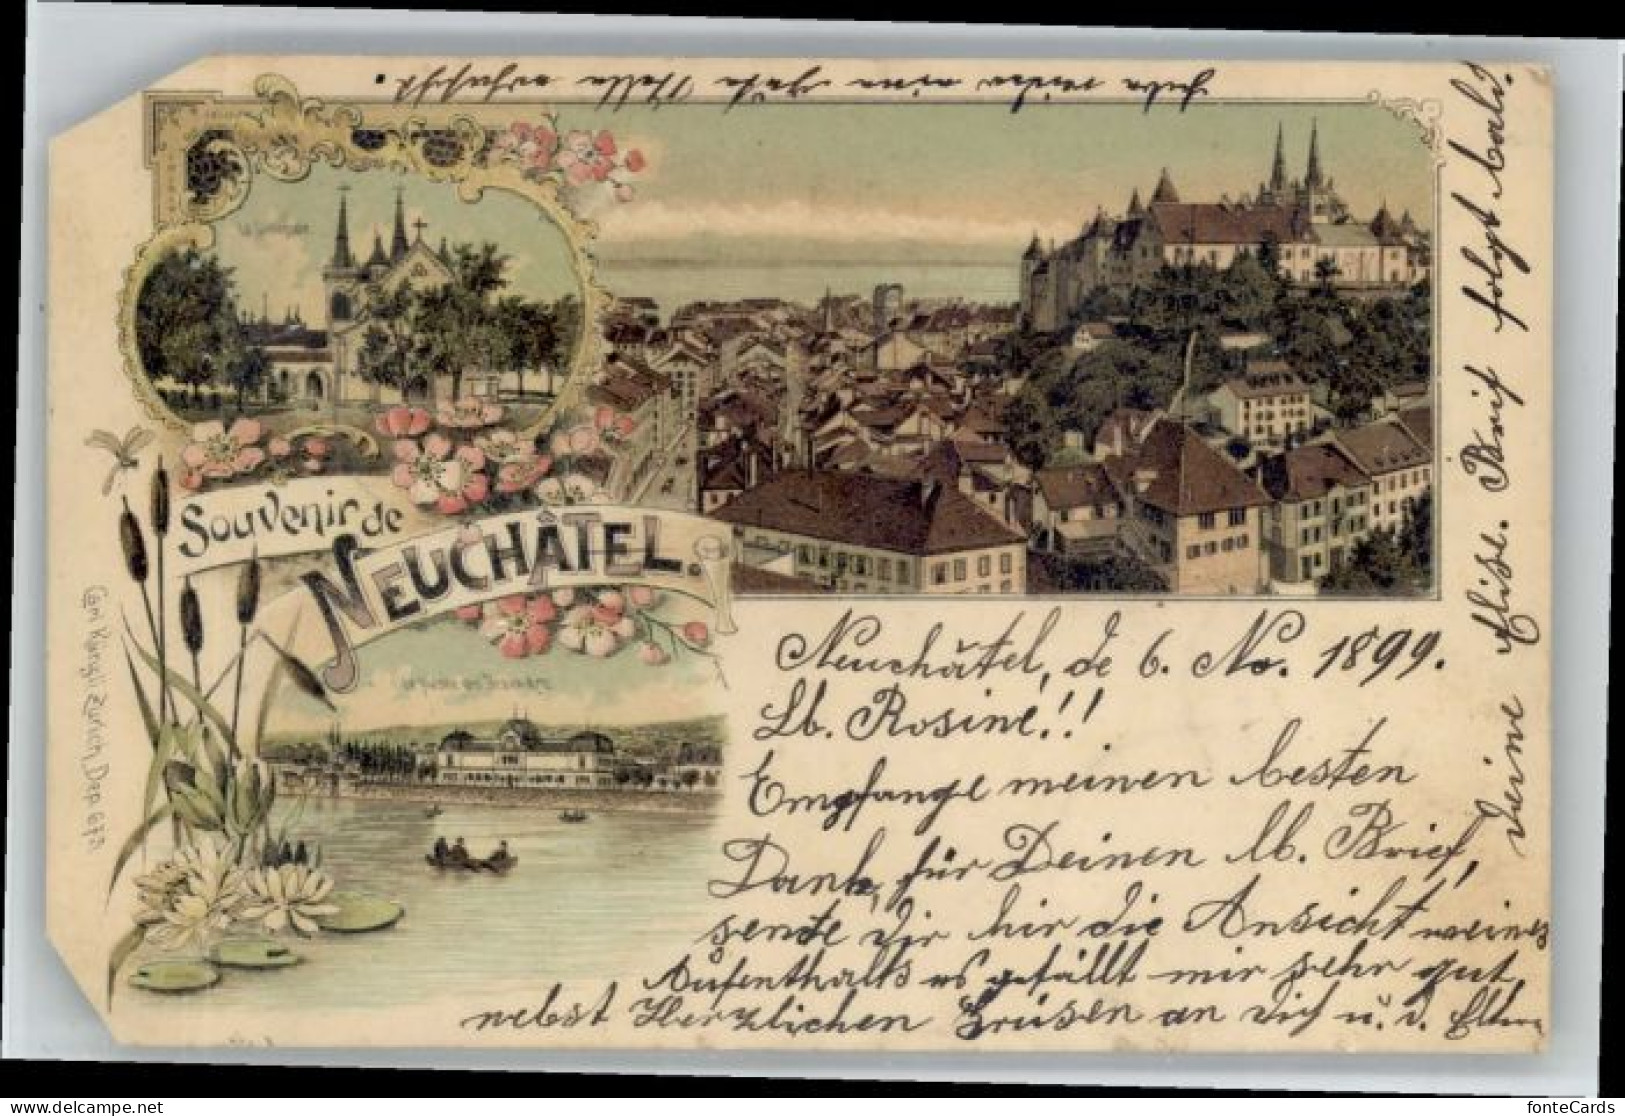 Souvenir de
NEUCHÂTEL.
Cari Künzli Zürich, Dep. 673.
Neuchâtel, de 6. No. 1899.
Lb. Rosine!!
Empfange meinen besten
Dank, für Deinen lb. Brief,
sende dir hir die Ansicht meines
Aufenthalts es gefällt mir sehr gut,
nebst Herzlichen Grüsen an dich u. d. Eltern
deine Elise. Brief folgt bald.
habe wieder eine gute Stelle
fonteCards